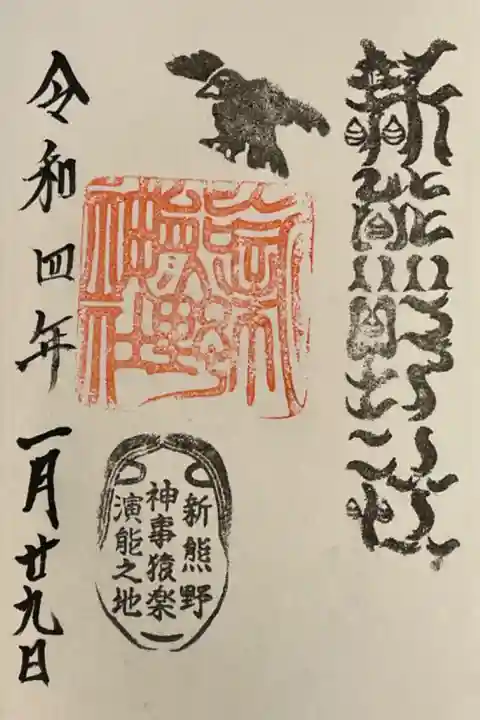 新熊
新熊野神社
新熊野
神事猿楽
演能之地
令和四年一月廿九日